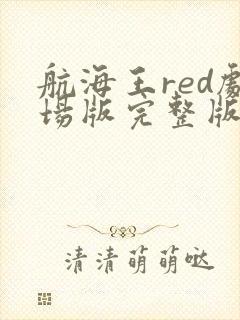 航海王red劇
場版完整版
清清萌萌哒